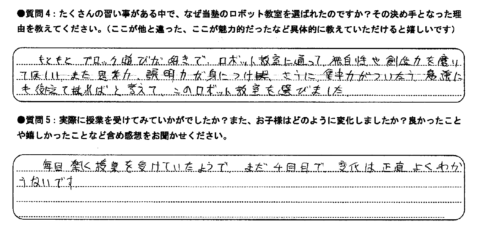 ●質問4：たくさんの習い事がある中で、なぜ当塾のロボット教室を選ばれたのですか？その決め手となった理
由を教えてください。（ここが他と違った、ここが魅力的だったなど具体的に教えていただけると嬉しいです）
もともと ブロック遊びが好きで、ロボット教室に通って、独自性や創造力を磨い
てほしい。また 思考力、説明力が身につけば、さらに、集中力がついたら 勉強に
も役立て
と考えて、このロボット教室を選びました。
●質問5：実際に授業を受けてみていかがでしたか？また、お子様はどのように変化しましたか？良かったこと
や嬉しかったことなど含め感想をお聞かせください。
毎回 楽しく 授業を受けていたようで、まだ 4回目で、変化は正直 よくわか
らないです。